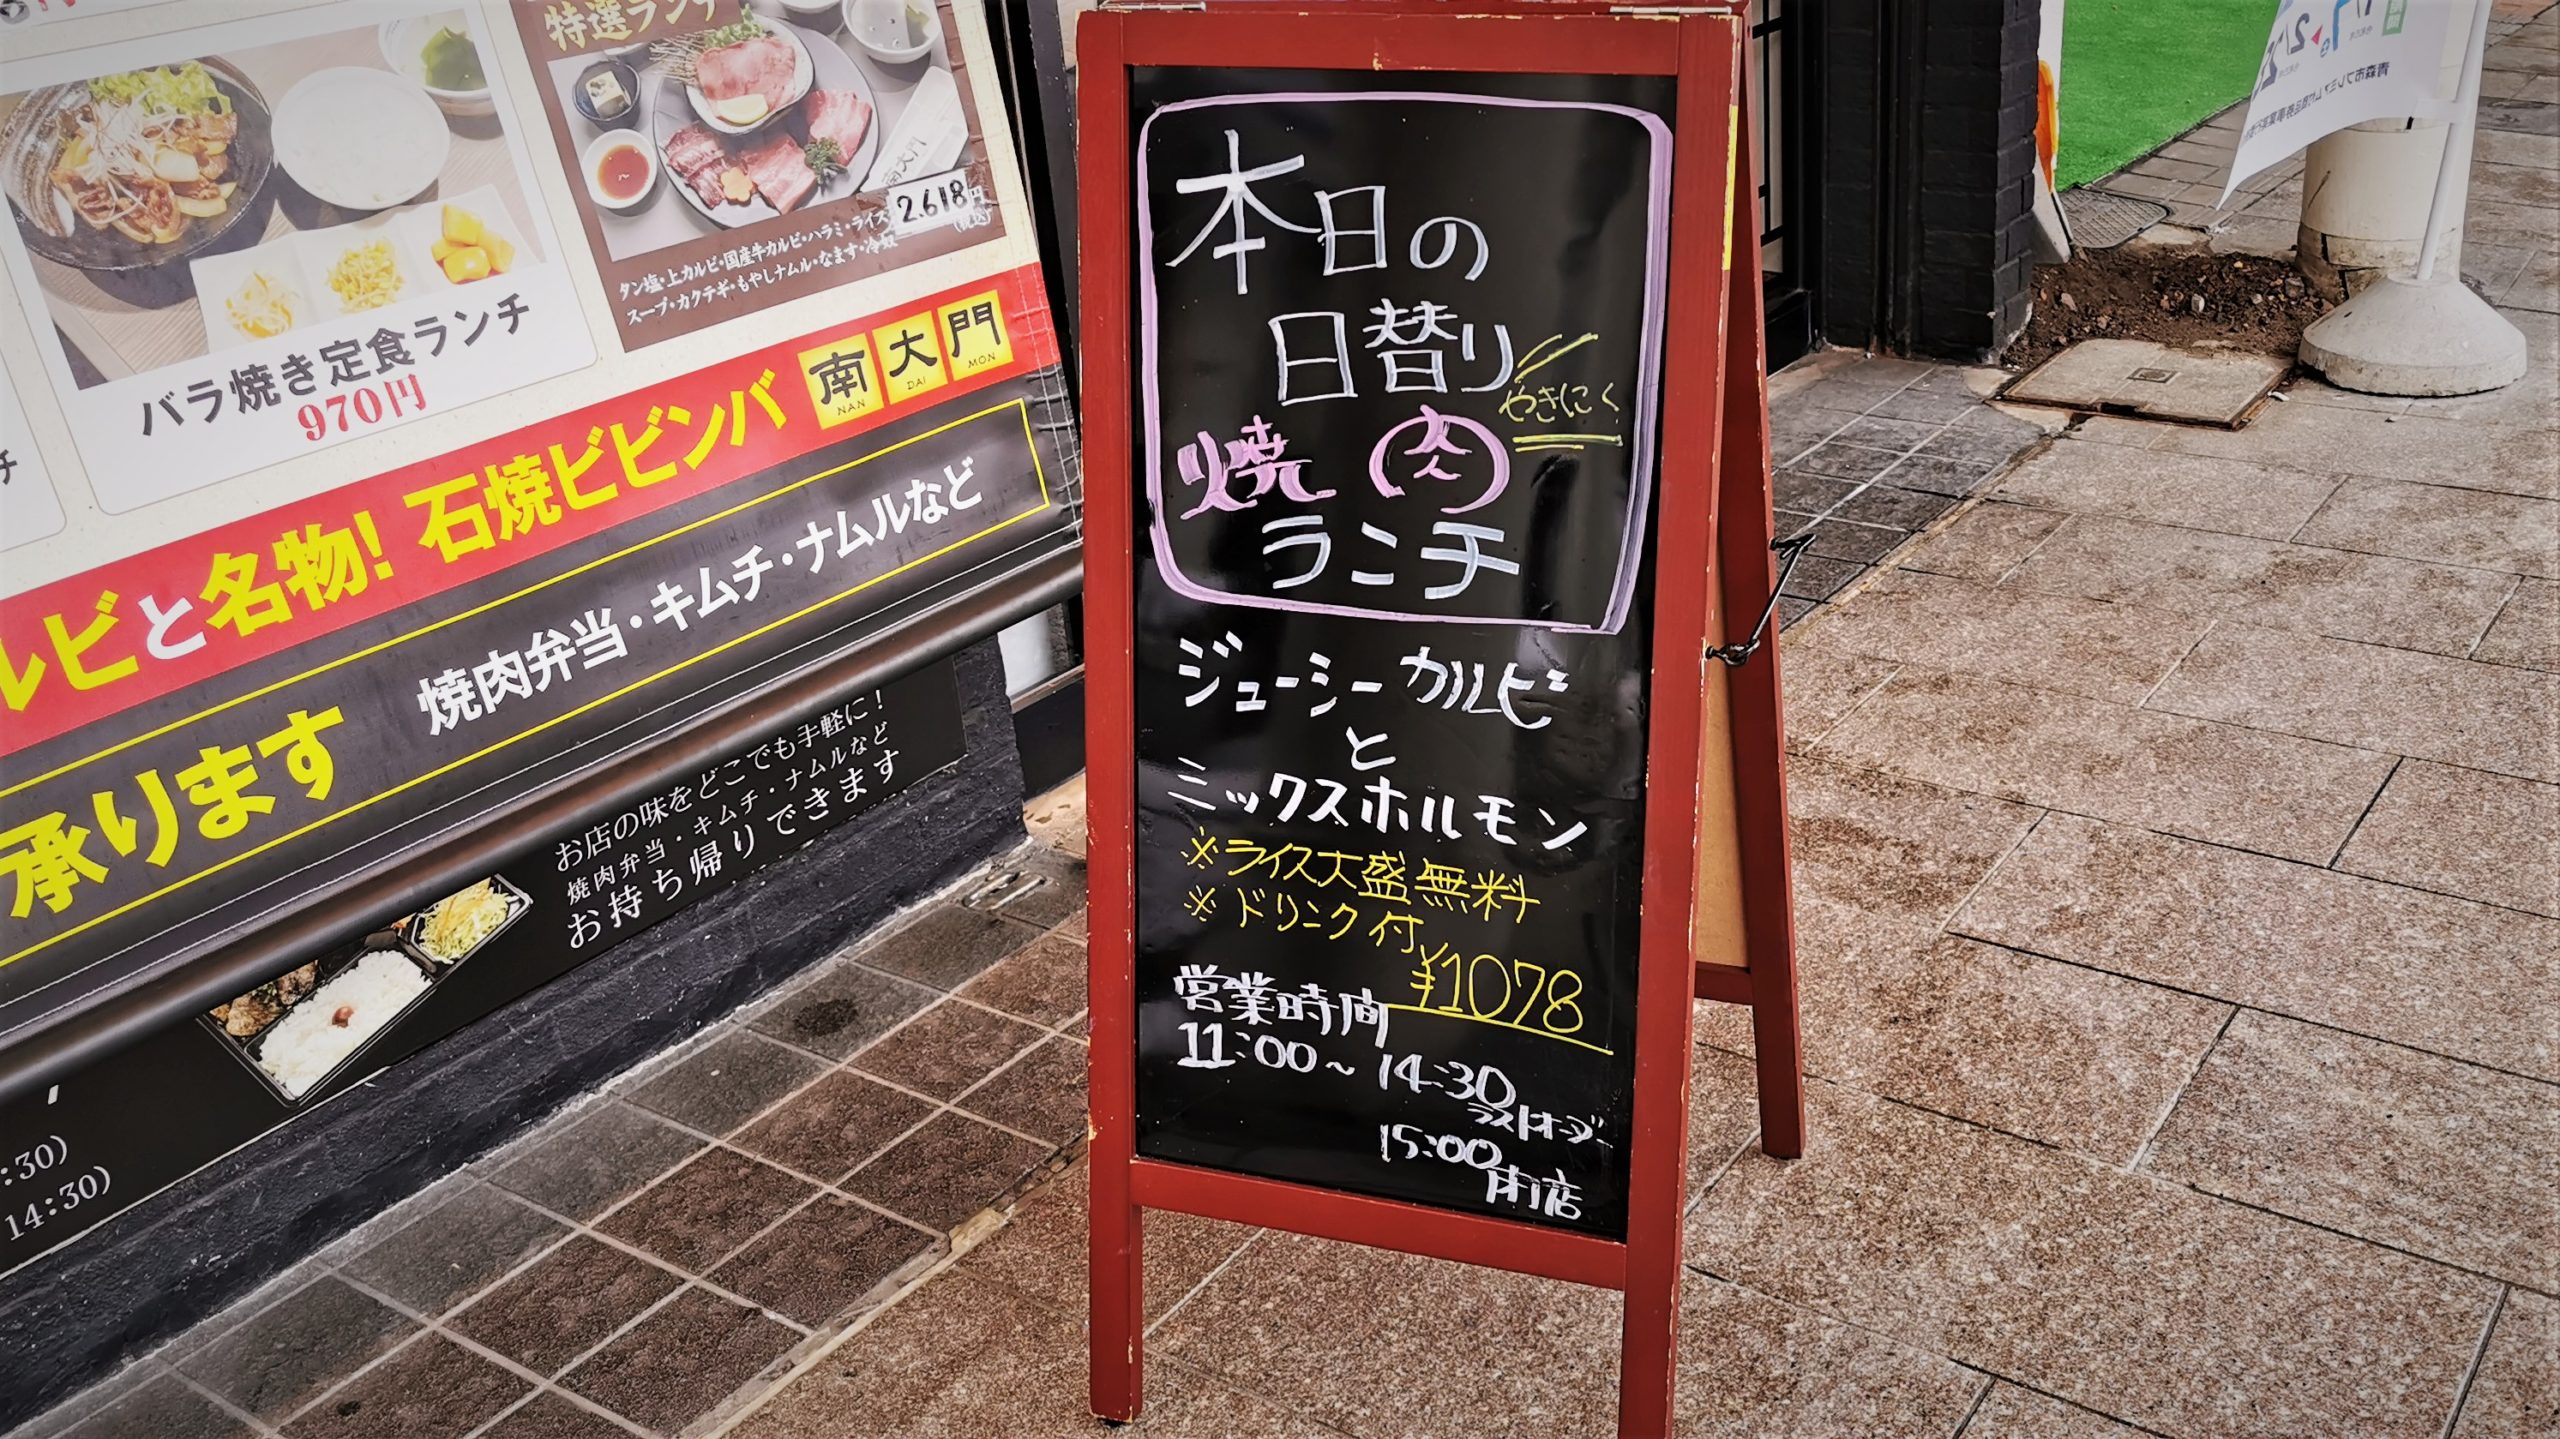 特選ランチ
2.618円
(税込)
タン塩・上カルビ・国産牛カルビ・ハラミ・ライス
スープ・カクテギ・もやしナムル・なます・冷奴
南大門
バラ焼き定食ランチ
970円
チ
ルビと名物! 石焼ビビンバ
南大門
NAN DAI MON
承ります 焼肉弁当・キムチ・ナムルなど
お店の味をどこでも手軽に!
焼肉弁当・キムチ・ナムルなど
お持ち帰りできます
:30)
14:30)
本日の
日替り
やきにく
焼肉
ランチ
ジューシーカルビ
と
ミックスホルモン
※ライス大盛無料
※ドリンク付
¥1078
営業時間
11:00~14:30
ラストオーダー
15:00
閉店